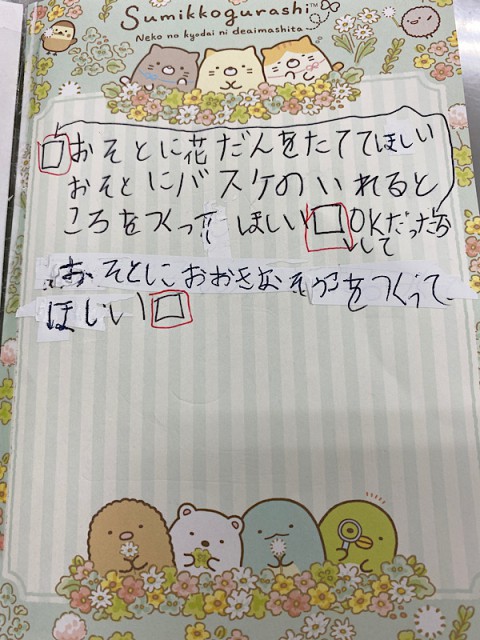 Sumikkogurashi™
Neko no kyodai ni deaimashita
□おそとに花だんをたててほしい
おそとにバスケのいれると
ころをつくって ほしい□OKだったら
して
おそとにおおきなそうこをつくって
ほしい□